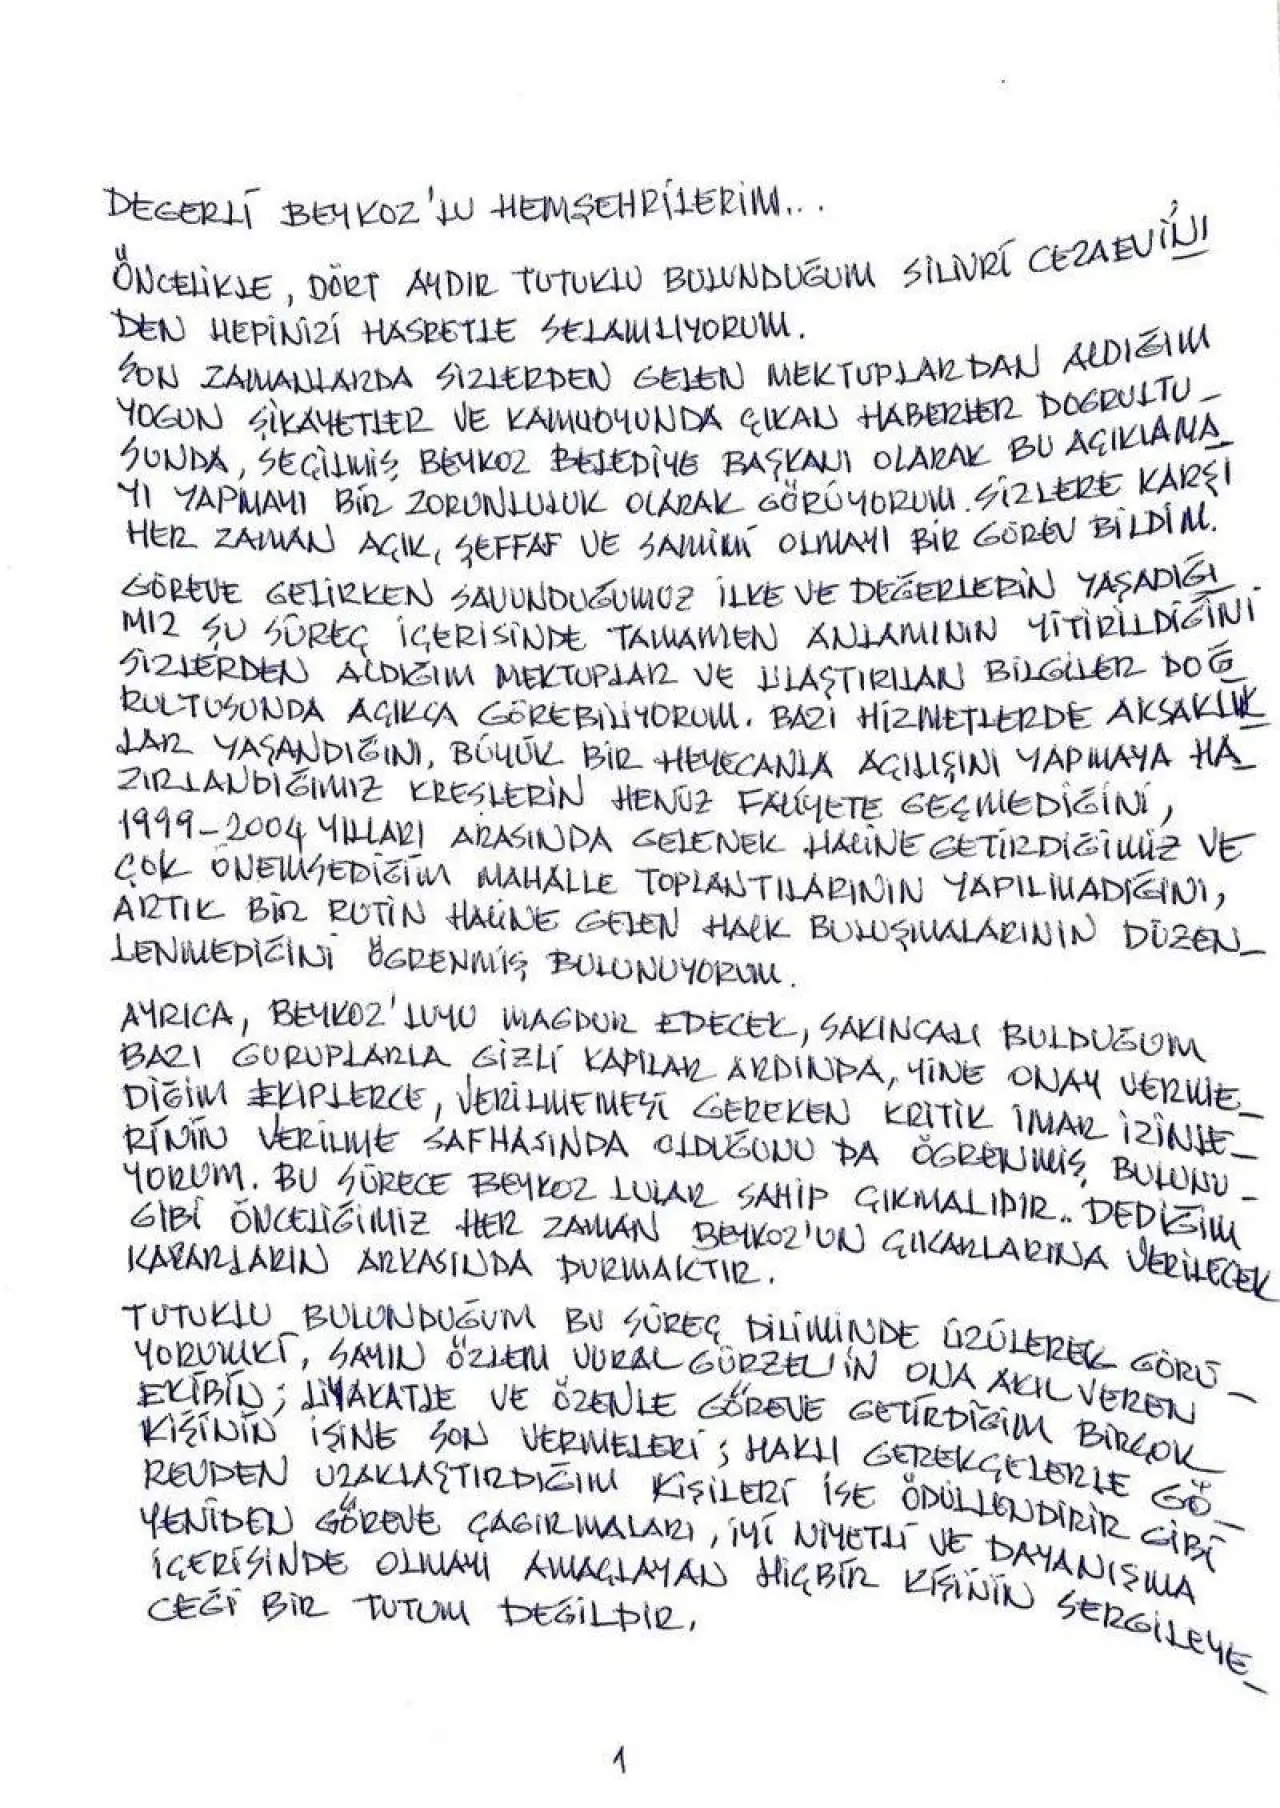 DEGERLİ BEYKOZ'LU HEMŞEHRİLERİM...
ÖNCELİKLE, DÖRT AYDIR TUTUKLU BULUNDUĞUM SİLİVRİ CEZAEVİNİ
DEN HEPİNİZİ HASRETLE SELAMLIYORUM.
SON ZAMANLARDA SİZLERDEN GELEN MEKTUPLARDAN ALDIĞIM
YOGUN ŞİKAYETLER VE KAMUOYUNDA ÇIKAN HABERLER DOGRULTU_
SUNDA, SEÇİLMİŞ BEYKOZ BELEDİYE BAŞKANI OLARAK BU AÇIKLAMA_
YI YAPMAYI BİR ZORUNLULUK OLARAK GÖRÜYORUM. SİZLERE KARŞI
HER ZAMAN AÇIK, ŞEFFAF VE SAMİMİ OLMAYI BİR GÖREV BİLDİM.
GÖREVE GELİRKEN SAVUNDUĞUMUZ İLKE VE DEĞERLERİN YAŞADIĞI_
MIZ ŞU SÜREÇ İÇERİSİNDE TAMAMEN ANLAMININ YİTİRİLDİĞİNİ
SİZLERDEN ALDIĞIM MEKTUPLAR VE ULAŞTIRILAN BİLGİLER DOĞ_
RULTUSUNDA AÇIKÇA GÖREBİLİYORUM. BAZI HİZMETLERDE AKSAKLIK_
LAR YAŞANDIĞINI, BÜYÜK BİR HEYECANLA AÇILIŞINI YAPMAYA HA_
ZIRLANDIĞIMIZ KREŞLERİN HENÜZ FALİYETE GEÇMEDİĞİNİ,
1999-2004 YILLARI ARASINDA GELENEK HALİNE GETİRDİĞİMİZ VE
ÇOK ÖNEMSEDİĞİM MAHALLE TOPLANTILARININ YAPILMADIĞINI,
ARTIK BİR RUTİN HALİNE GELEN HALK BULUŞMALARININ DÜZEN_
LENMEDİĞİNİ ÖGRENMİŞ BULUNUYORUM.
AYRICA, BEYKOZ'LUYU MAGDUR EDECEK, SAKINCALI BULDUĞUM
BAZI GURUPLARLA GİZLİ KAPILAR ARDINDA, YİNE ONAY VERME_
DİĞİM EKİPLERCE, VERİLMEMESİ GEREKEN KRİTİK İMAR İZİNLE_
RİNİN VERİLME SAFHASINDA OLDUĞUNU DA ÖGRENMİŞ BULUNU_
YORUM. BU SÜRECE BEYKOZ LULAR SAHİP ÇIKMALIDIR.. DEDİĞİM
GİBİ ÖNCELİĞİMİZ HER ZAMAN BEYKOZ'UN ÇIKARLARINA VERİLECEK
KARARLARIN ARKASINDA DURMAKTIR.
TUTUKLU BULUNDUĞUM BU SÜREÇ DİLİMİNDE ÜZÜLEREK GÖRÜ_
YORUMKİ, SAYIN ÖZLEM VURAL GÜRZEL'İN ONA AKIL VEREN
EKİBİN; LİYAKATLE VE ÖZENLE GÖREVE GETİRDİĞİM BİRÇOK
KİŞİNİN İŞİNE SON VERMELERİ; HAKLI GEREKÇELERLE GÖ_
REVDEN UZAKLAŞTIRDIĞIM KİŞİLERİ İSE ÖDÜLLENDİRİR GİBİ
YENİDEN GÖREVE ÇAGIRMALARI, İYİ NİYETLİ VE DAYANIŞMA
İÇERİSİNDE OLMAYI AMAÇLAYAN HİÇBİR KİŞİNİN SERGİLEYE_
CEĞİ BİR TUTUM DEGİLDİR.
1